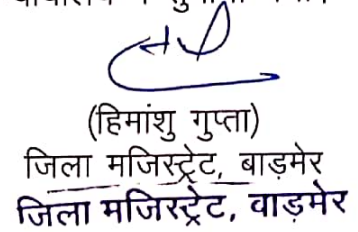 (हिमांशु गुप्ता)
जिला मजिस्ट्रेट, बाड़मेर
जिला मजिस्ट्रेट, वाड़मेर